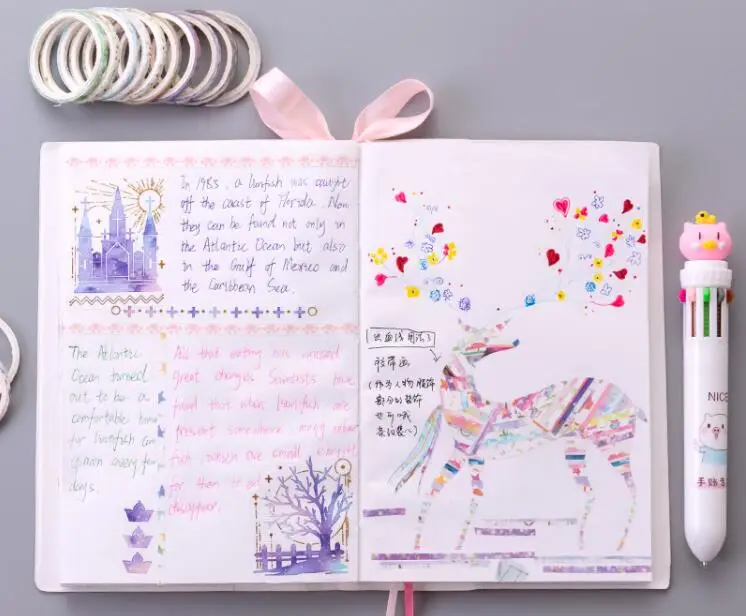 In 1983, a lionfish was caught
off the coast of Florida. Now
they can be found not only in
the Atlantic Ocean but also
in the Gulf of Mexico and
the Caribbean Sea.
The Atlantic
Ocean turned
out to be a
comfortable home
for lionfish can
spawn every few
days.
All that eating has caused
great changes Scientists have
found that when lionfish are
present somewhere, many
fish
for them to eat
disappear.
胶带画
(作为人物服饰
部分的装饰
也可哦
NICE